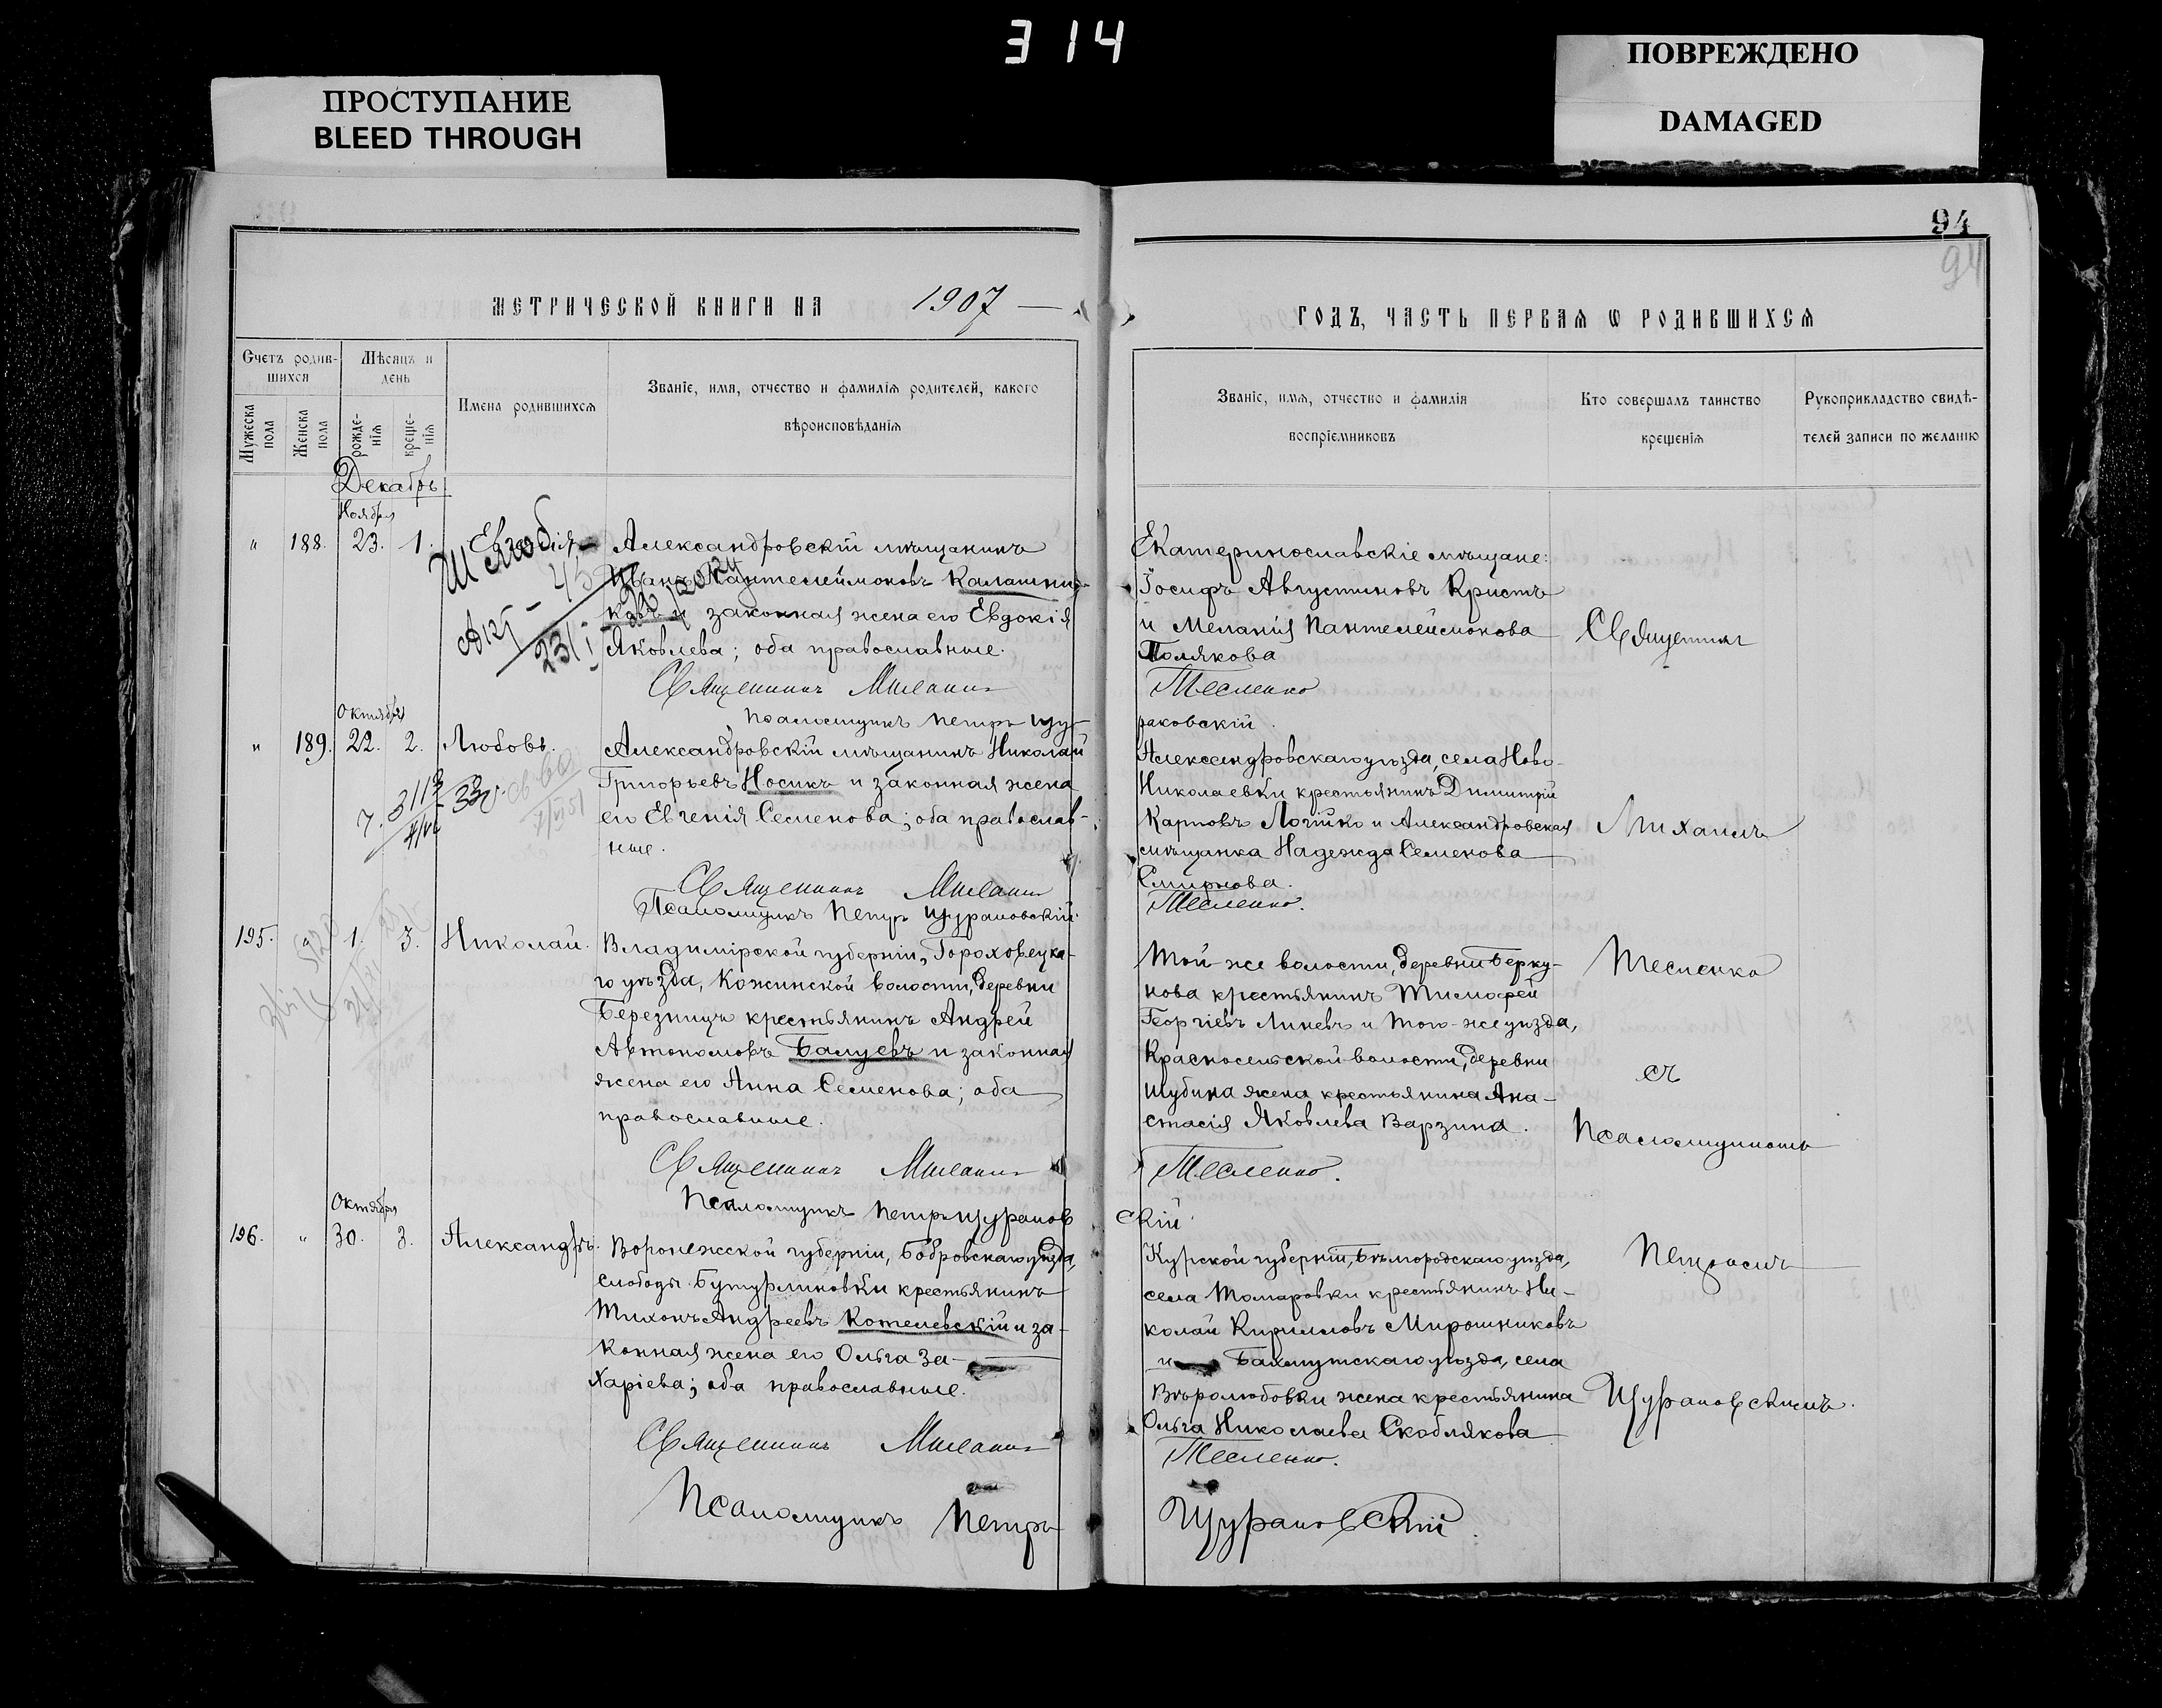 314
ПРОСТУПАНИЕ
BLEED THROUGH
ПОВРЕЖДЕНО
DAMAGED
94
94
МЕТРИЧЕСКОЙ КНИГИ НА 1907
Счетъ родив-
шихся
Мужеска пола
Женска пола
Мѣсяцъ и
день
рожде-
нія
креще-
нія
Имена родившихся
Званіе, имя, отчество и фамилія родителей, какого
вѣроисповѣданія
Декабрь
Ноября
" 188. 23. 1. Евгенія
Александровскій мѣщанинъ
Иванъ Пантелеймоновъ Калашни-
ковъ и законная жена его Евдокія
Яковлева; оба православные.
Священникъ Михаилъ
Псаломщикъ Петръ Щу-
Октября
" 189. 22. 2. Любовь.
Александровскій мѣщанинъ Николай
Григорьевъ Носикъ и законная жена
его Евгенія Семенова; оба православ-
ные.
Священникъ Михаилъ
Псаломщикъ Петръ Щураковскій
195. " 1. 3. Николай.
Владимірской губерніи, Гороховецка-
го уѣзда, Кожинской волости, деревни
Березницъ крестьянинъ Андрей
Автономовъ Балуевъ и законная
жена его Анна Семенова; оба
православные.
Священникъ Михаилъ
Псаломщикъ Петръ Щураков
Октября
196. " 30. 3. Александръ.
Воронежской губерніи, Бобровскаго уѣзда,
слободы Бутурлиновки крестьянинъ
Тихонъ Андреевъ Котелевскій и за-
конная жена его Ольга За-
харіева; оба православные.
Священникъ Михаилъ
Псаломщикъ Петръ
ГОДЪ, ЧАСТЬ ПЕРВАЯ Ѡ РОДИВШИХСЯ
Званіе, имя, отчество и фамилія
воспріемниковъ
Кто совершалъ таинство
крещенія
Рукоприкладство свидѣ-
телей записи по желанію
Екатеринославскіе мѣщане:
Іосифъ Августиновъ Кристъ
и Меланія Пантелеймонова
Полякова
Тесленко
раковскій.
Александровскаго уѣзда, села Ново-
Николаевки крестьянинъ Димитрій
Карповъ Логйко и Александровская
мѣщанка Надежда Семенова
Смирнова.
Тесленко.
Той-же волости, деревни Берку-
нова крестьянинъ Тимофей
Георгіевъ Линевъ и того-же уѣзда,
Красносельской волости, деревни
Шубина жена крестьянина Ана-
стасія Яковлева Варзина.
Тесленко.
скій
Курской губерніи, Бѣлгородскаго уѣзда,
села Томаровки крестьянинъ Ни-
колай Кирилловъ Мирошниковъ
и Бахмутскаго уѣзда, села
Вѣролюбовки жена крестьянина
Ольга Николаева Скоблякова
Тесленко.
Щураковскій
Священникъ
Михаилъ
Тесленко
съ
Псаломщикомъ
Петромъ
Щураковскимъ.